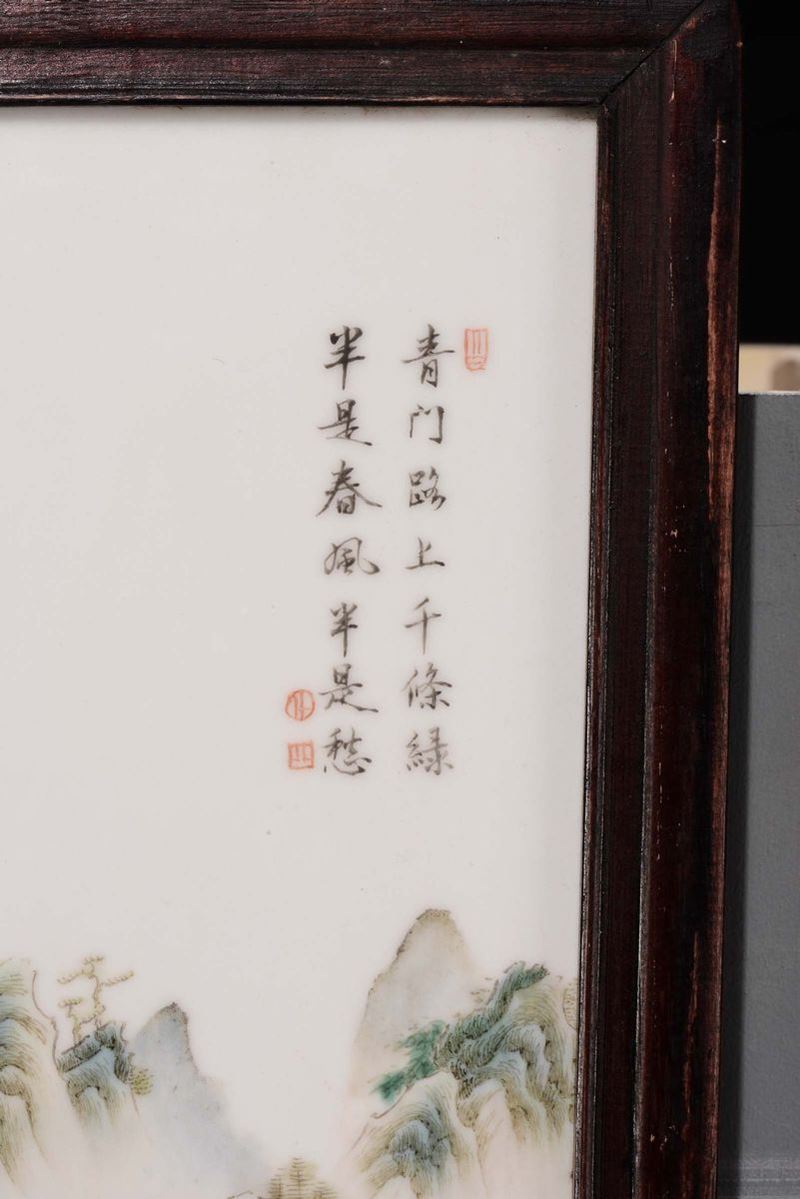 青门路上千條緑
半是春風半是愁